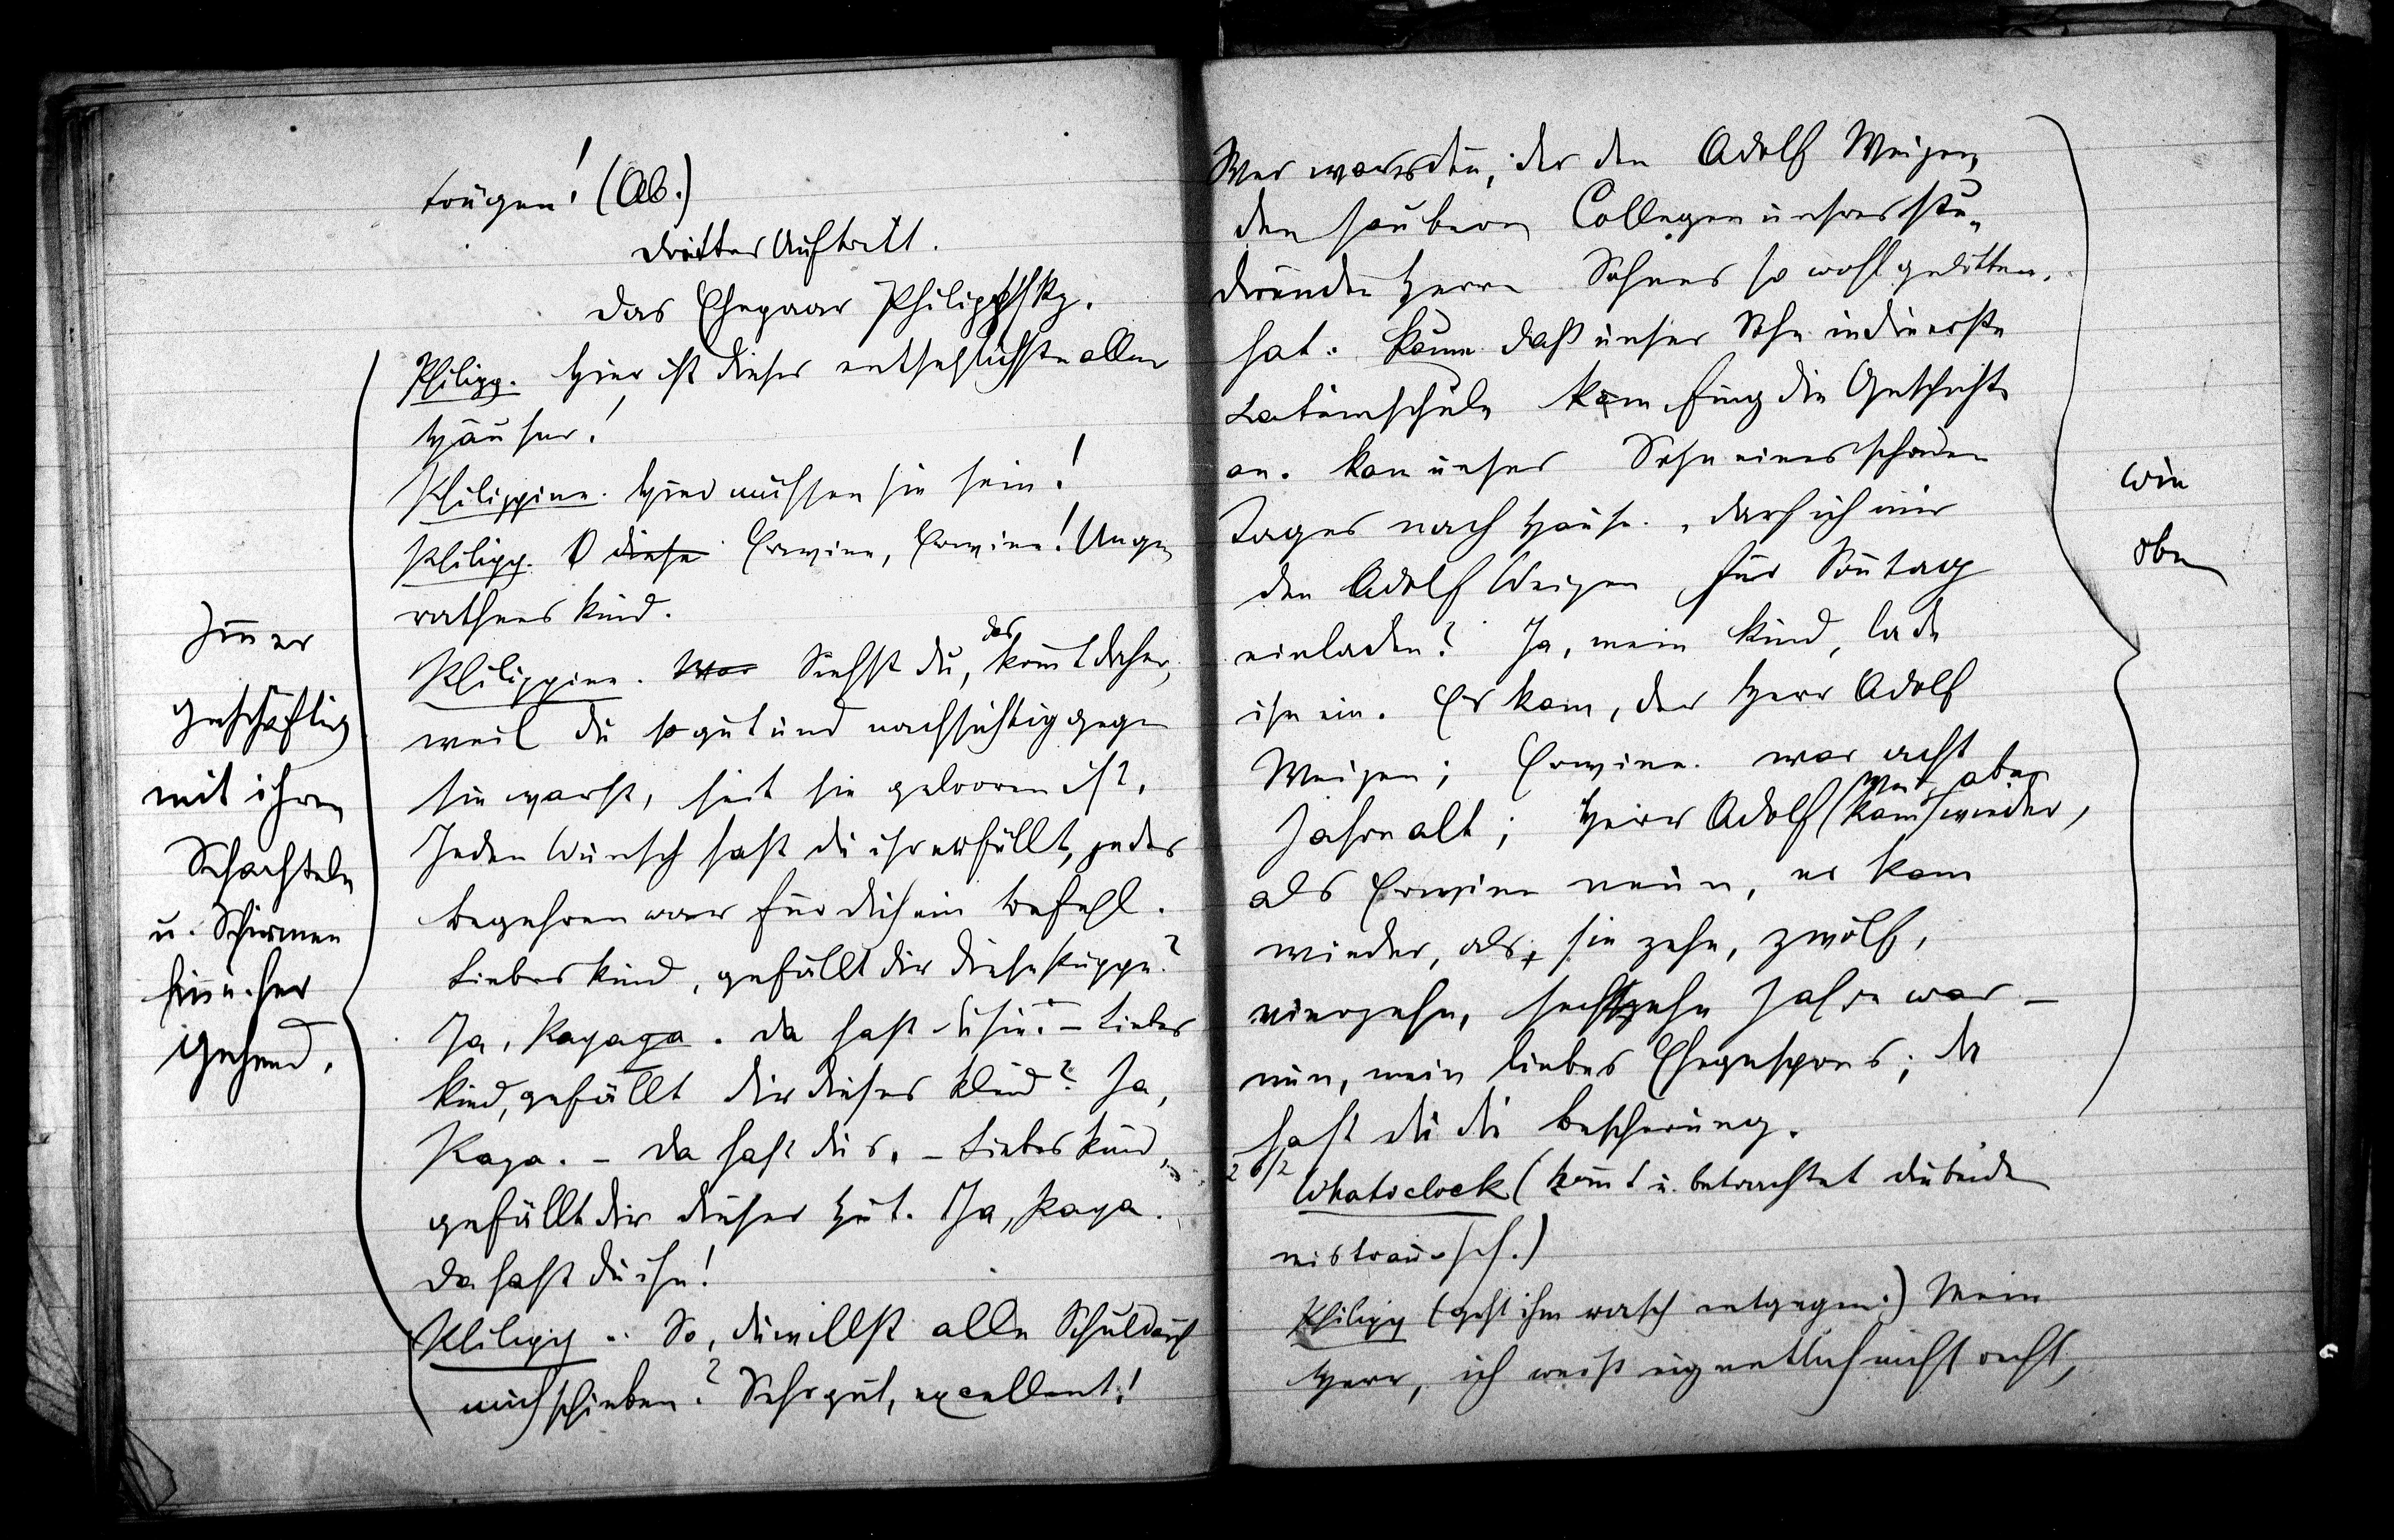 trügen! (Ab.)
Dritter Auftritt.
Das Ehepaar Philippsky.
Philipp. Hier ist dieses entsetzlichste aller
Häuser!
Philippine. Hier müssen sie sein!
Philipp. O diese Erwine, Erwine! Unge¬
rathenes Kind.
Philippine. War Siehst du, das kom̅t daher,
weil du so gut und nachsichtig gegen
sie warst, seit sie geboren ist.
Jeden Wunsch hast du ihr erfüllt, jedes
Begehren war für dich ein Befehl.
Liebes Kind, gefällt dir diese Puppe?
Ja, Papapa. Da hast du sie. – Liebes
Kind, gefällt dir dieses Kleid? Ja,
Papa. – Da hast du's. – Liebes Kind,
gefällt dir dieser Hut. Ja, Papa.
Da hast du ihn!
Philipp. So, du willst alle Schuld auf
mich schieben? Sehr gut, excellent!
Im̅er
geschäftig
mit ihren
Schachteln
u. Schirmen
hin u. her
gehend.
Wer war's den̅, der den Adolf Weizen,
den saubern Collegen unseres stu¬
direnden Herrn Sohnes so wohl gelitten
hat. Kaum daß unser Sohn in die erste
Lateinschule kam fing die Geschichte
an. Kam unser Sohn eines schönen
Tages nach Hause. „darf ich mir
den Adolf Weizen für Son̅tag
einladen? Ja, mein Kind, lade
ihn ein. Er kam, der Herr Adolf
Weizen; Erwine war acht
Jahre alt; Herr Adolf kam aber wieder,
als Erwine neun, er kam
wieder, als sie zehn, zwölf,
vierzehn, sechszehn Jahre war –
nun, mein liebes Ehegespons; da
hast du die Bescherung.
Whatsclock (kom̅t u. betrachtet die beiden
mistrauisch.)
Philipp (geht ihm rasch entgegen.) Mein
Herr, ich weiß eigentlich nicht recht,
wie
oben